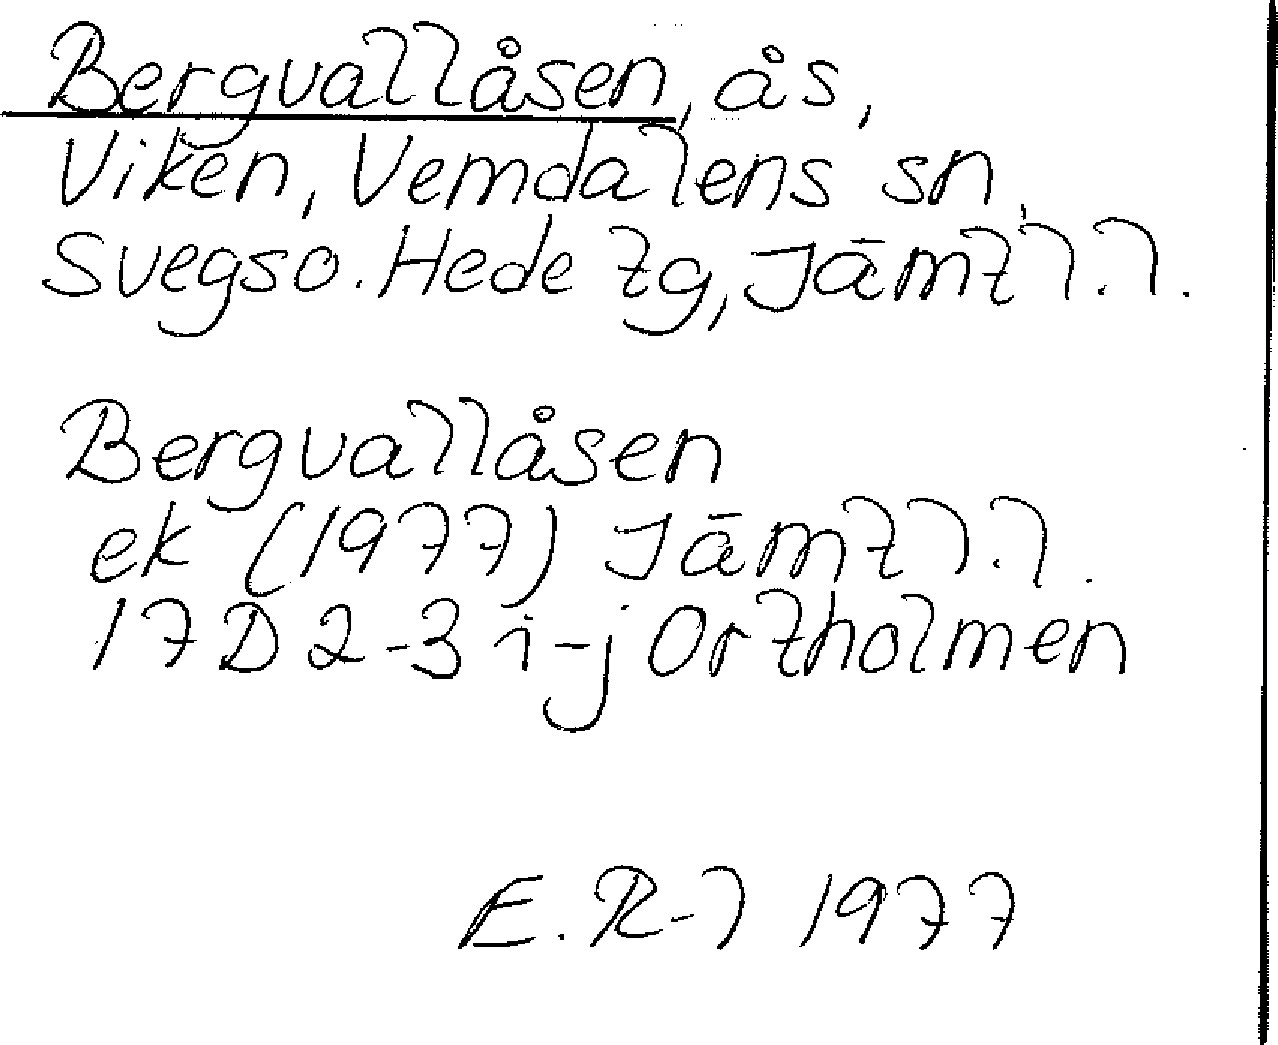 Bergvallåsen, ås,
Viken, Vemdalens sn,
Svegs o. Hede tg, Jämtl.l.
Bergvallåsen
ek (1977) Jämtl.l.
17D 2-3 i-j Ortholmen
E. R-l 1977